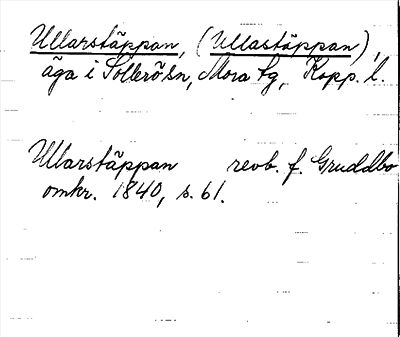 Ullarstäppan, (Ullastäppan),
äga i Sollerö sn, Mora tg, Kopp. l.
Ullarstäppan revb. f. Gruddbo
omkr. 1840, s. 61.